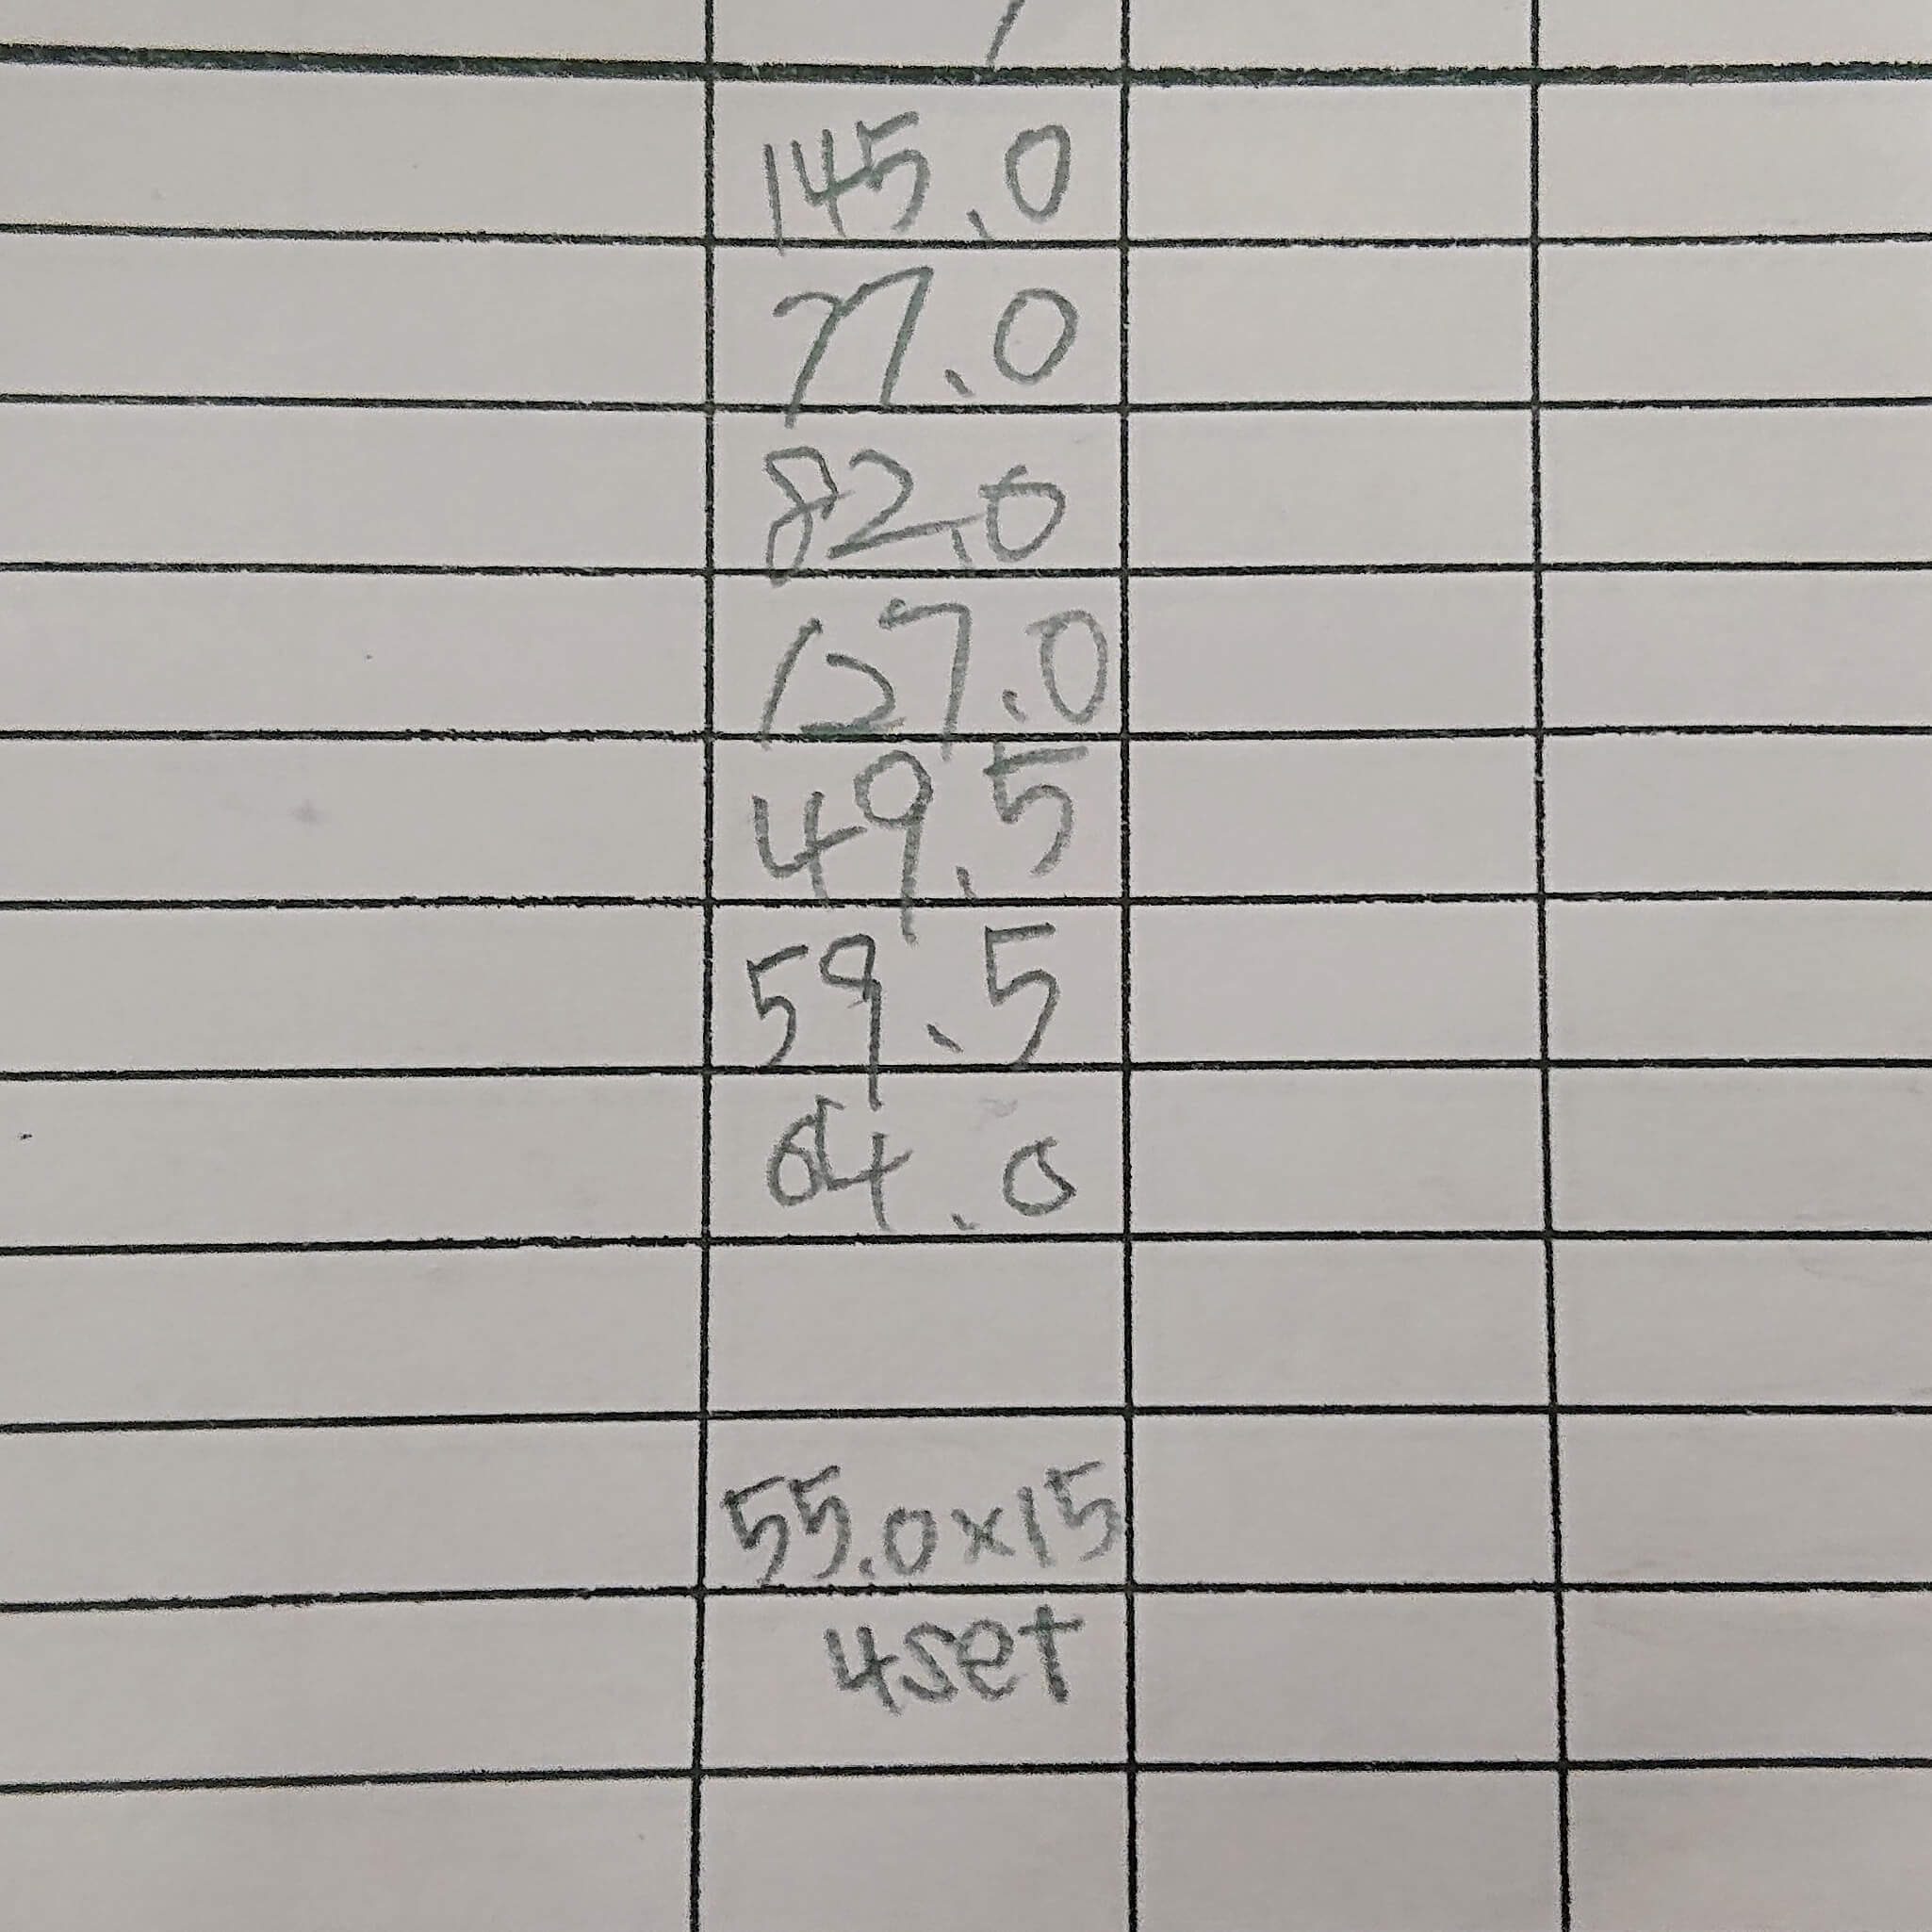 145.0
77.0
82.0
127.0
49.5
59.5
64.0
55.0×15
4set